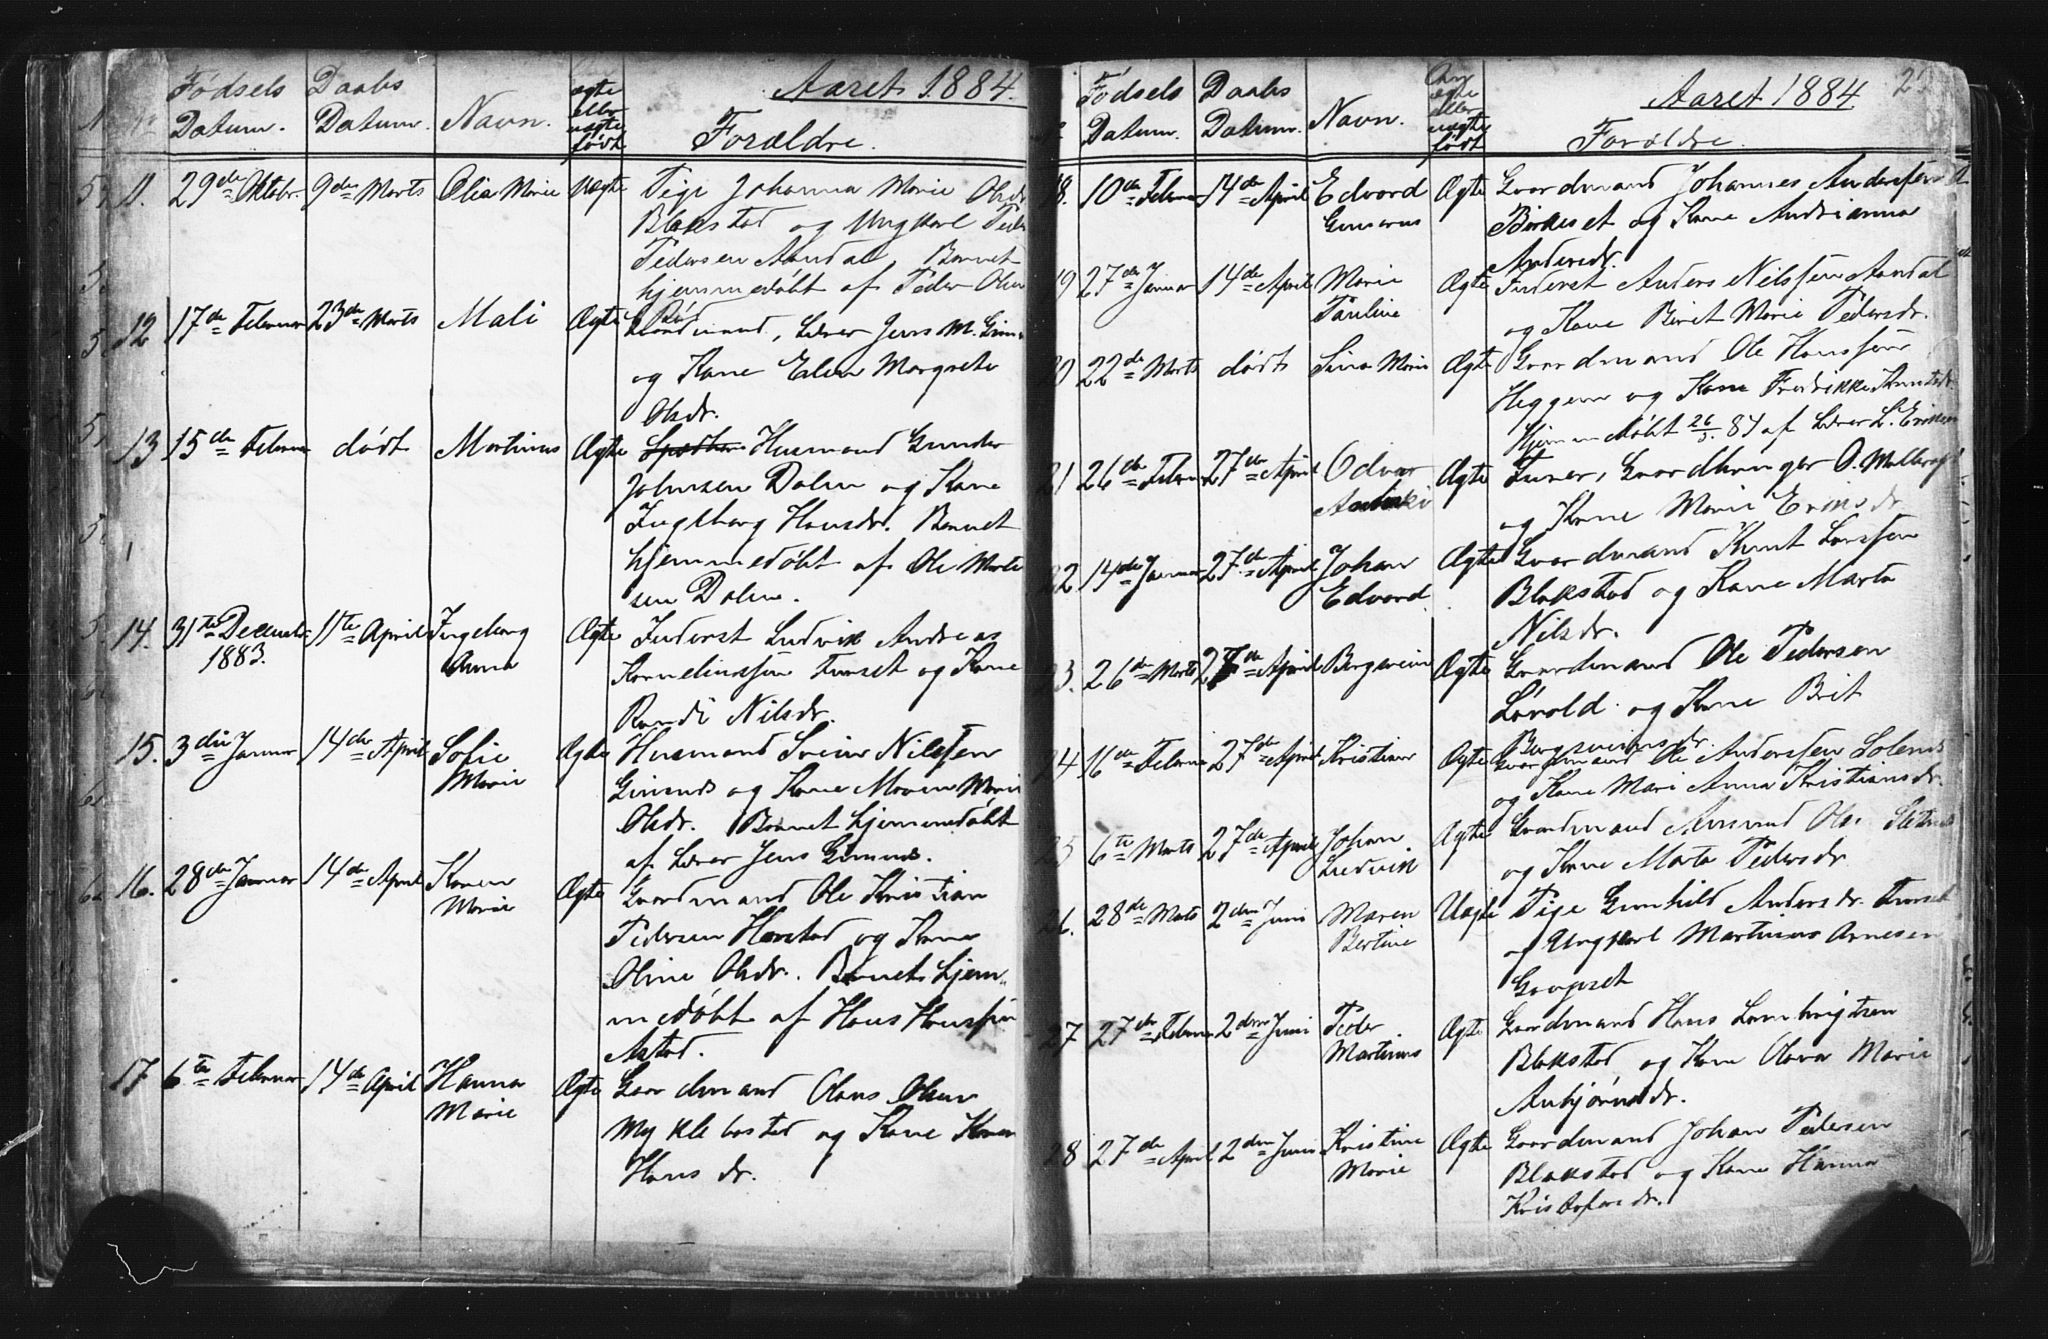 Aaret 1884.
Fødsels Datum. Daabs Datum. Navn. ægte eller uægte født Forældre.
11. 29de Oktobr. 9de Marts Olia Marie Uægte Pige Johanna Marie Olsdr.
Blakstad og Ungkarl Peder
Pedersen Aandal, Barnet
hjemmedøbt af Peder Olsen
12 17de Februar 23de Marts Mali Ægte Gaardmand, Lærer Jens M.
og Kone Elen Margrete
Olsdr.
13 15de Februar dødt Martinus Ægte Husmand Gunder
Johnsen Dalen og Kone
Ingeborg Hansdr. Barnet
hjemmedøbt af Ole Marte
sen Dalen.
14. 31te December 1883. 14de April Ingeborg Anna Ægte Inderst Ludvik Andreas
Korneliussen Furset og Kone
Randi Nilsdr.
15. 3die Januar 14de April Sofie Marie Ægte Husmand Svein Nilssen
og Kone Maren Marie
Olsdr. Barnet hjemmedøbt
af Lærer Jens
16. 28de Januar 14de April Karen Marie Ægte Gaardmand Ole Kristian
Pedersen Harstad og Kone
Oline Olsdr. Barnet hjem-
medøbt af Hans Hanssen
17 6te Februar 14de April Hanna Marie Ægte Gaardmand Olaus Olsen
Myklebostad og Kone Karen
Hansdr.
Aaret 1884
Fødsels Datum. Daabs Datum. Navn. Om ægte eller uægte født Forældre.
18. 10de Februar 14de April Edvard Gunerius Ægte Gaardmand Johannes Anderssen
og Kone Andrianna
Andersdr.
19 27de Januar 14de April Marie Pauline Ægte Inderst Anders Nilssen Aandal
og Kone Berit Marie Pedersdr.
20 22de Marts dødt Sina Marie Ægte Gaardmand Ole Hanssen
Heggem og Kone Fredrikke Knutsdr.
Hjemmedøbt 26/3. 84 af Lærer L. Eriksen
21 26de Februar 27de April Odvar Ægte
og Kone Marie
22 14de Januar 27de April Johan Edvard Ægte Gaardmand Knut Larssen
Blakstad og Kone Marta
Nilsdr.
23. 26de Marts 27de April Bergsvein Ægte Gaardmand Ole Pedersen
Løvold og Kone Brit
Bergsveinsdr.
24 16de Februar 27de April Kristian Ægte Gaardmand Ole Anderssen
og Kone Mari Anna Kristiansdr.
25 6te Marts 27de April Johan Ludvik Ægte Gaardmand Amund
og Kone Marta Pedersdr.
26. 28de Marts 2den Juni Maren Bertine Uægte Pige Gunhild Andersdr. Furset
og Ungkarl Martinus Arnesen
27 27de Februar 2den Juni Peder Martinus Ægte Gaardmand Hans Lambrigtsen
Blakstad og Kone Olava Marie
Anbjørnsdr.
28 27de April 2den Juni Kristine Marie Ægte Gaardmand Johan Pedersen
Blakstad og Kone Hanna
Kristofersdr.